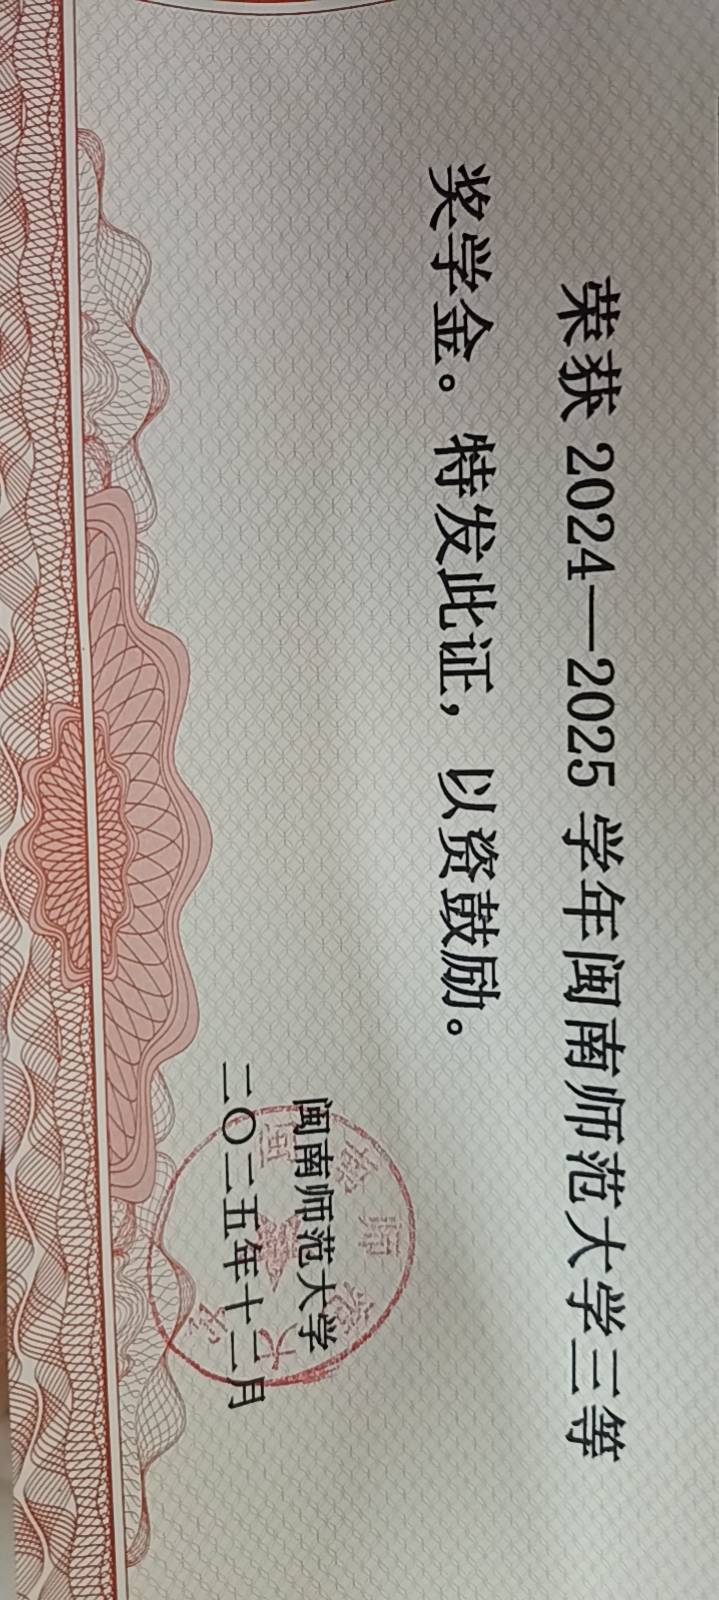 荣获 2024—2025 学年闽南师范大学三等
奖学金。特发此证，以资鼓励。
闽南师范大学
二〇二五年十二月
闽南师范大学